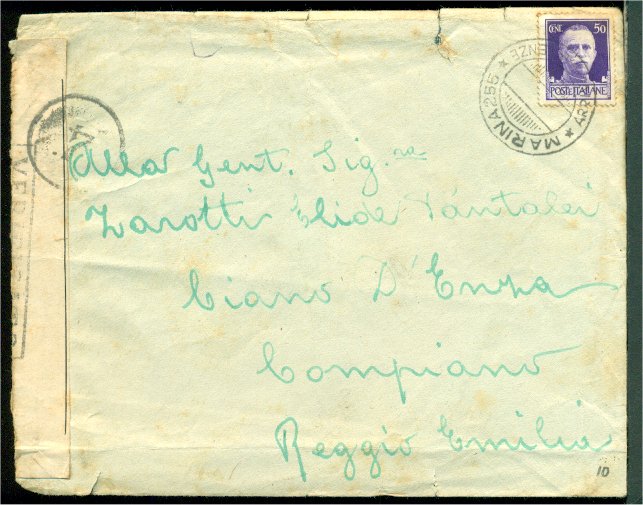 CENT. 50
POSTE ITALIANE
MARINA 255 ★
Alla Gent. Sig.ra
Zarotti Elide Pantalei
Ciano D'Enza
Compiano
Reggio Emilia
10